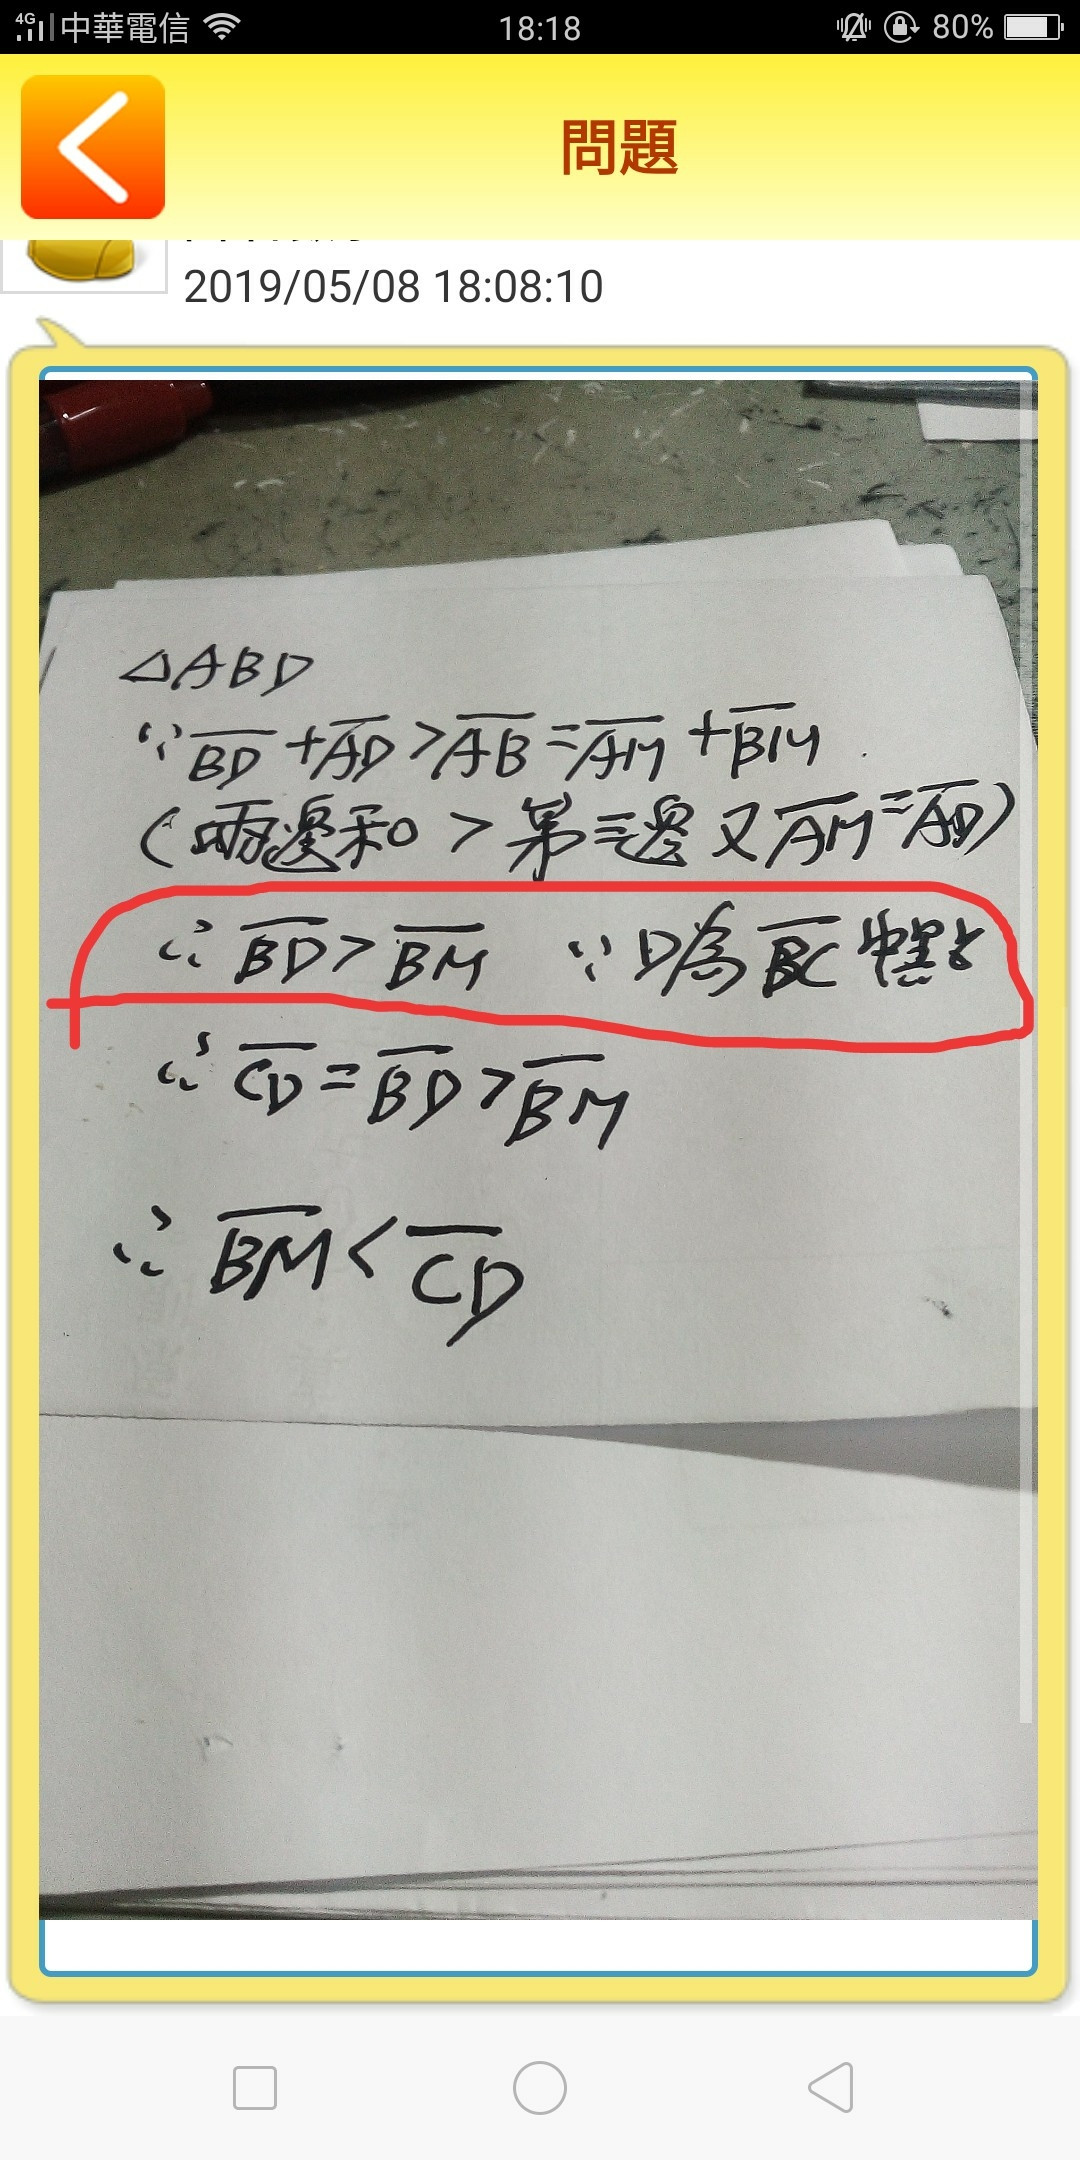 4G 中華電信 18:18 80%
問題
2019/05/08 18:08:10
△ABD
∵ B̅D̅ + A̅D̅ > A̅B̅ = A̅M̅ + B̅M̅
(兩邊和 > 第三邊 又 A̅M̅ = A̅D̅)
∴ B̅D̅ > B̅M̅ ∵ D為 B̅C̅ 中點
∴ C̅D̅ = B̅D̅ > B̅M̅
∴ B̅M̅ < C̅D̅